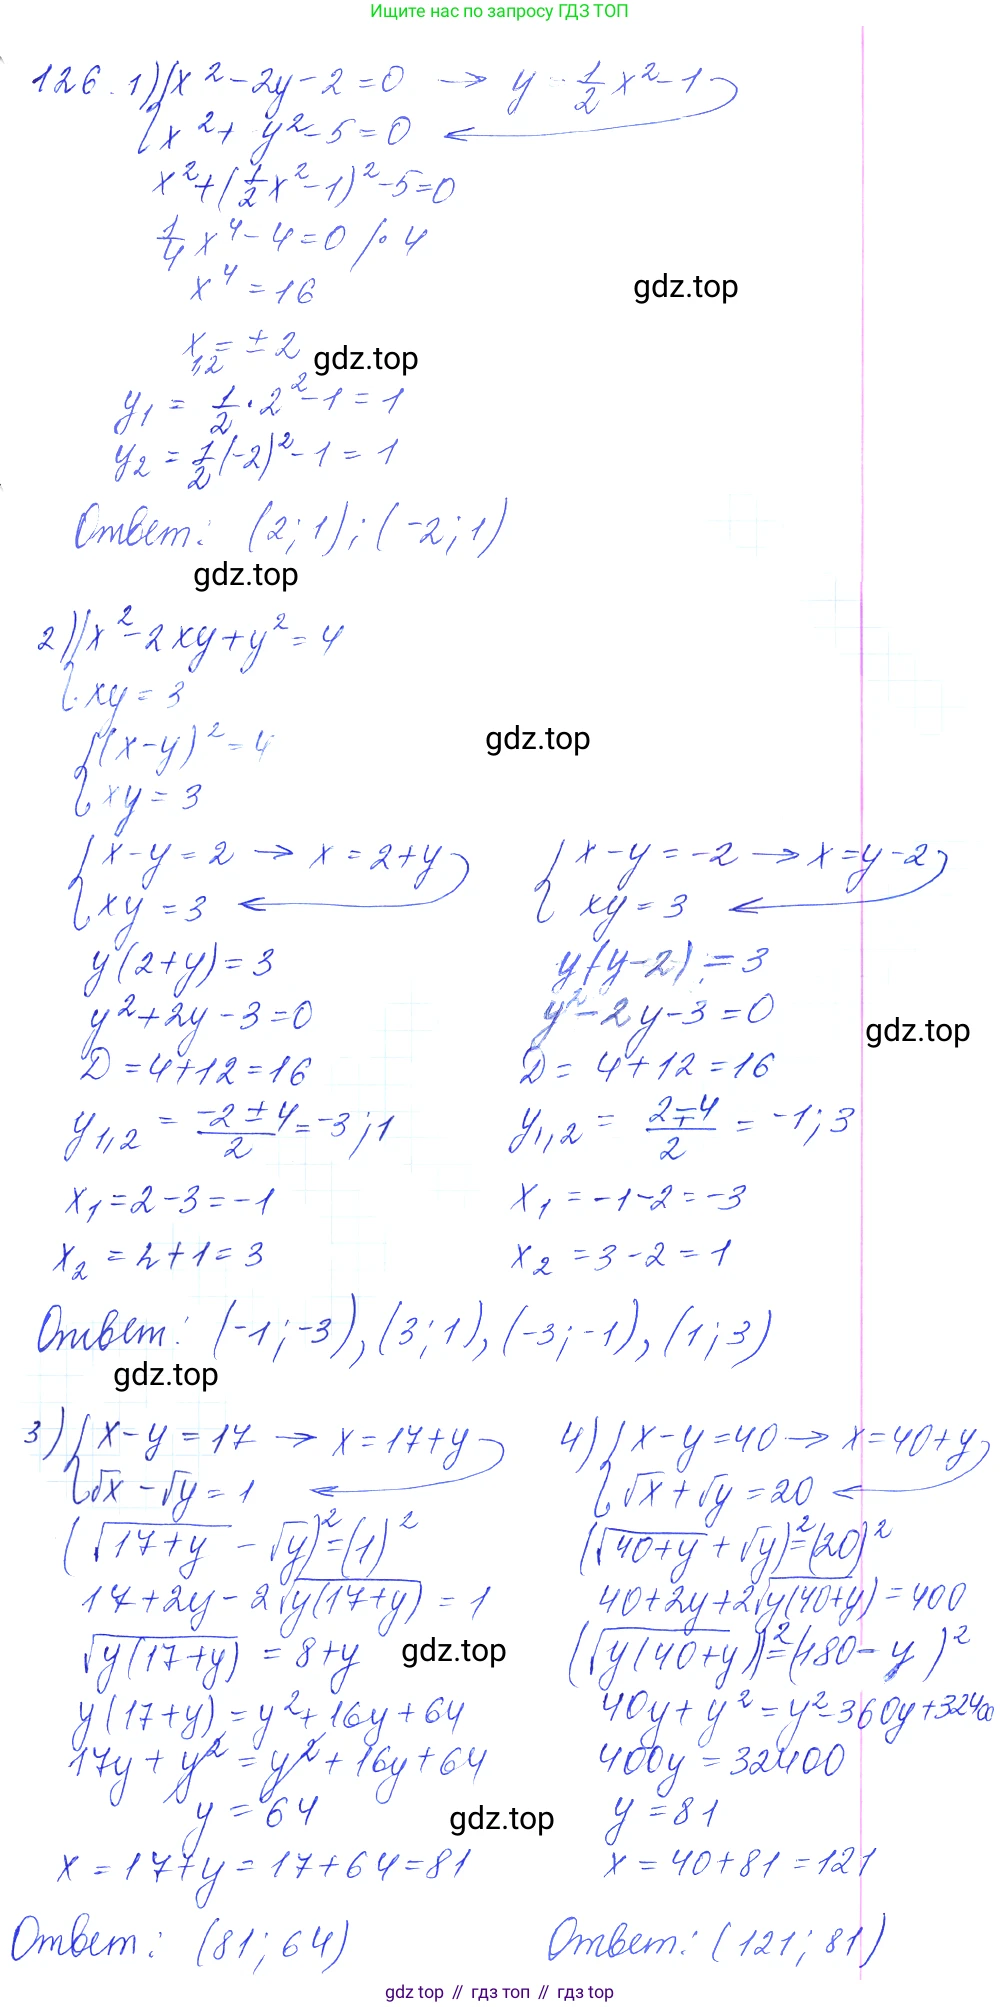 Ищите нас по запросу ГДЗ ТОП
126. 1) { x² - 2y - 2 = 0 → y = 1/2 x² - 1
x² + y² - 5 = 0 ←
x² + (1/2 x² - 1)² - 5 = 0
1/4 x⁴ - 4 = 0 /· 4
x⁴ = 16
gdz.top
x₁,₂ = ± 2
gdz.top
y₁ = 1/2 · 2² - 1 = 1
y₂ = 1/2 (-2)² - 1 = 1
Ответ: (2; 1); (-2; 1)
gdz.top
2) { x² - 2xy + y² = 4
xy = 3
{ (x - y)² = 4
xy = 3
gdz.top
{ x - y = 2 → x = 2 + y
xy = 3 ←
y(2 + y) = 3
y² + 2y - 3 = 0
D = 4 + 12 = 16
y₁,₂ = (-2 ± 4)/2 = -3; 1
x₁ = 2 - 3 = -1
x₂ = 2 + 1 = 3
{ x - y = -2 → x = y - 2
xy = 3 ←
y(y - 2) = 3
y² - 2y - 3 = 0
gdz.top
D = 4 + 12 = 16
y₁,₂ = (2 ∓ 4)/2 = -1; 3
x₁ = -1 - 2 = -3
x₂ = 3 - 2 = 1
Ответ: (-1; -3), (3; 1), (-3; -1), (1; 3)
gdz.top
3) { x - y = 17 → x = 17 + y
√x - √y = 1 ←
(√17 + y - √y)² = (1)²
17 + 2y - 2√y(17 + y) = 1
√y(17 + y) = 8 + y
gdz.top
y(17 + y) = y² + 16y + 64
17y + y² = y² + 16y + 64
y = 64
gdz.top
x = 17 + y = 17 + 64 = 81
Ответ: (81; 64)
4) { x - y = 40 → x = 40 + y
√x + √y = 20 ←
(√40 + y + √y)² = (20)²
40 + 2y + 2√y(40 + y) = 400
(√y(40 + y))² = (180 - y)²
40y + y² = y² - 360y + 32400
400y = 32400
y = 81
x = 40 + 81 = 121
Ответ: (121; 81)
gdz.top // гдз топ // гдз.top